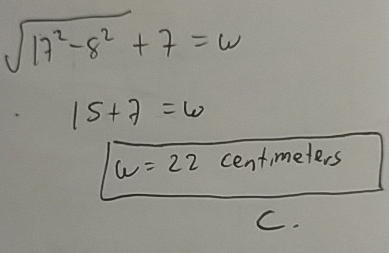 √17²-8² + 7 = w
15+7 = w
w = 22 centimeters
C.